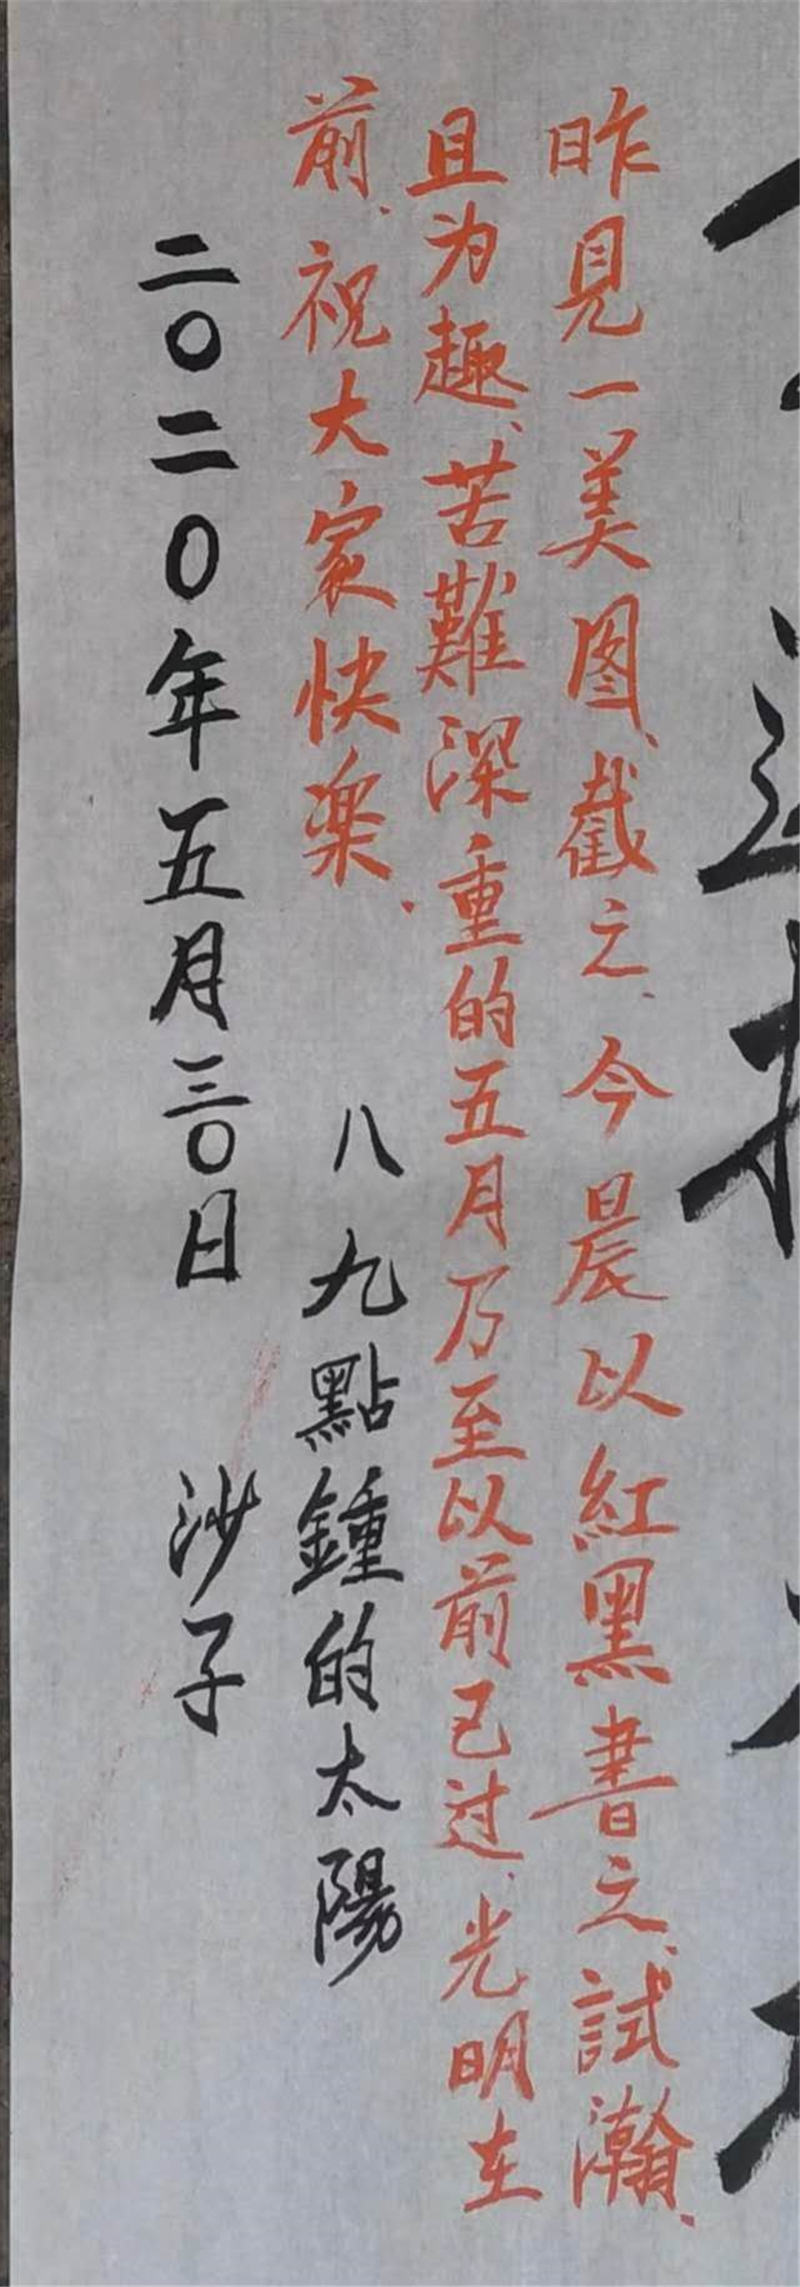 昨見一美图、截之、今晨以紅黑書之、試瀚、
且为趣、苦難深重的五月乃至以前已过、光明在
前、祝大家快楽、
八九點鍾的太陽
二〇二〇年五月三〇日 沙子